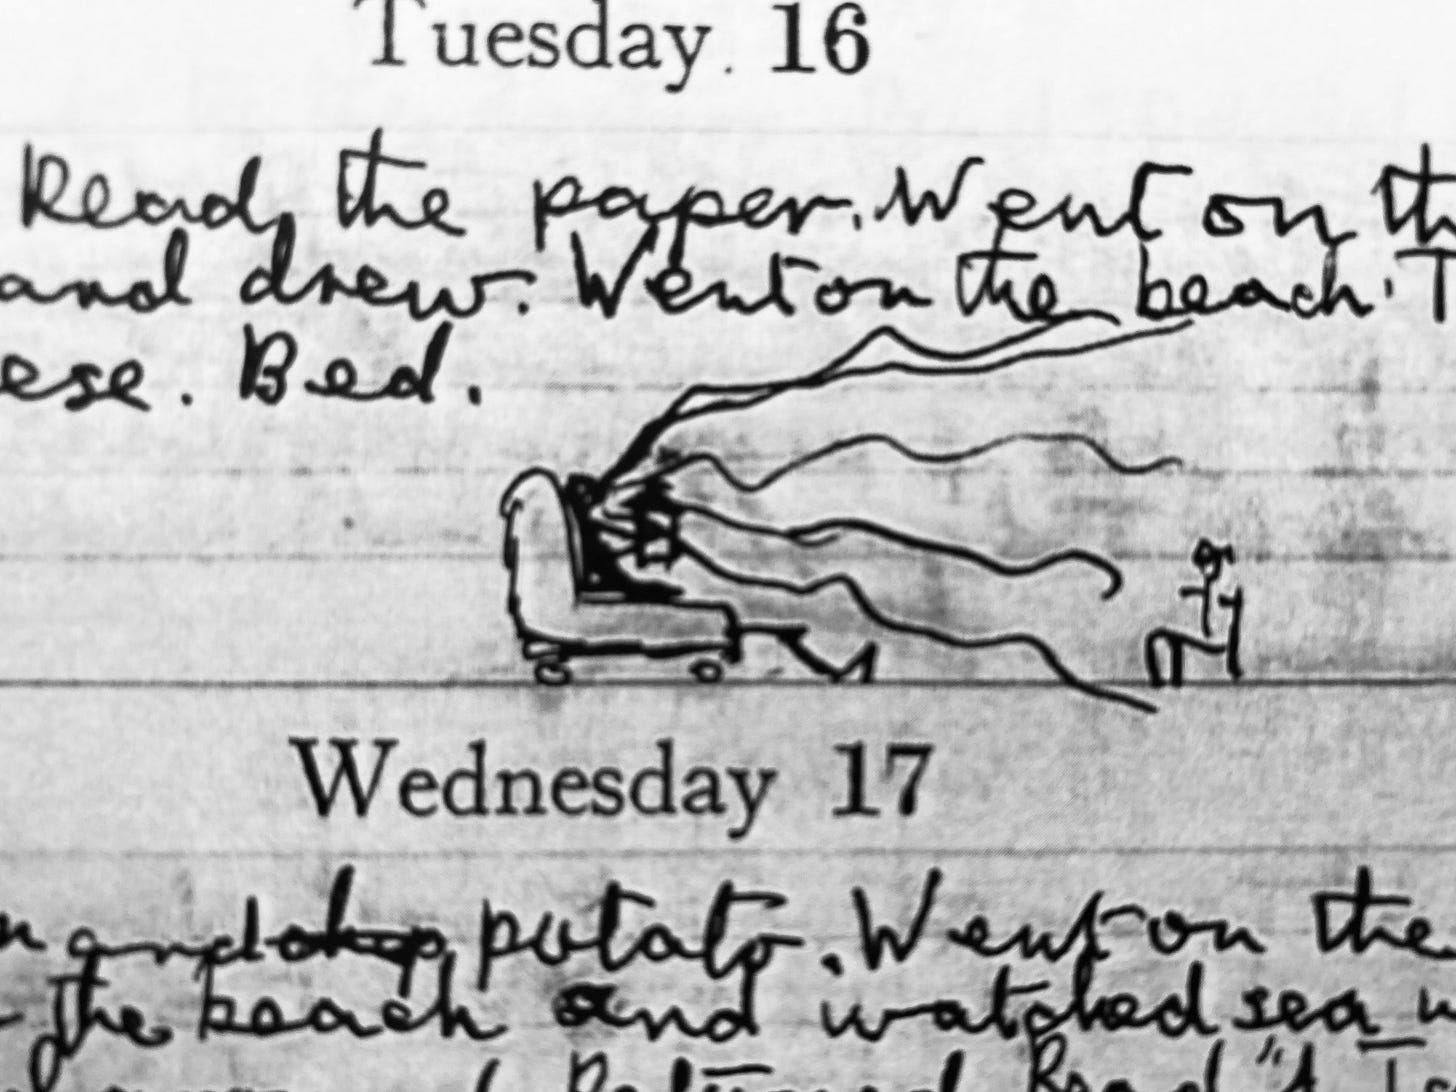 Tuesday 16
Read the paper. Went on th
and drew. Went on the beach. T
ese. Bed.
Wednesday 17
n and potato. Went on the
the beach and watched sea w
Returned. Read "